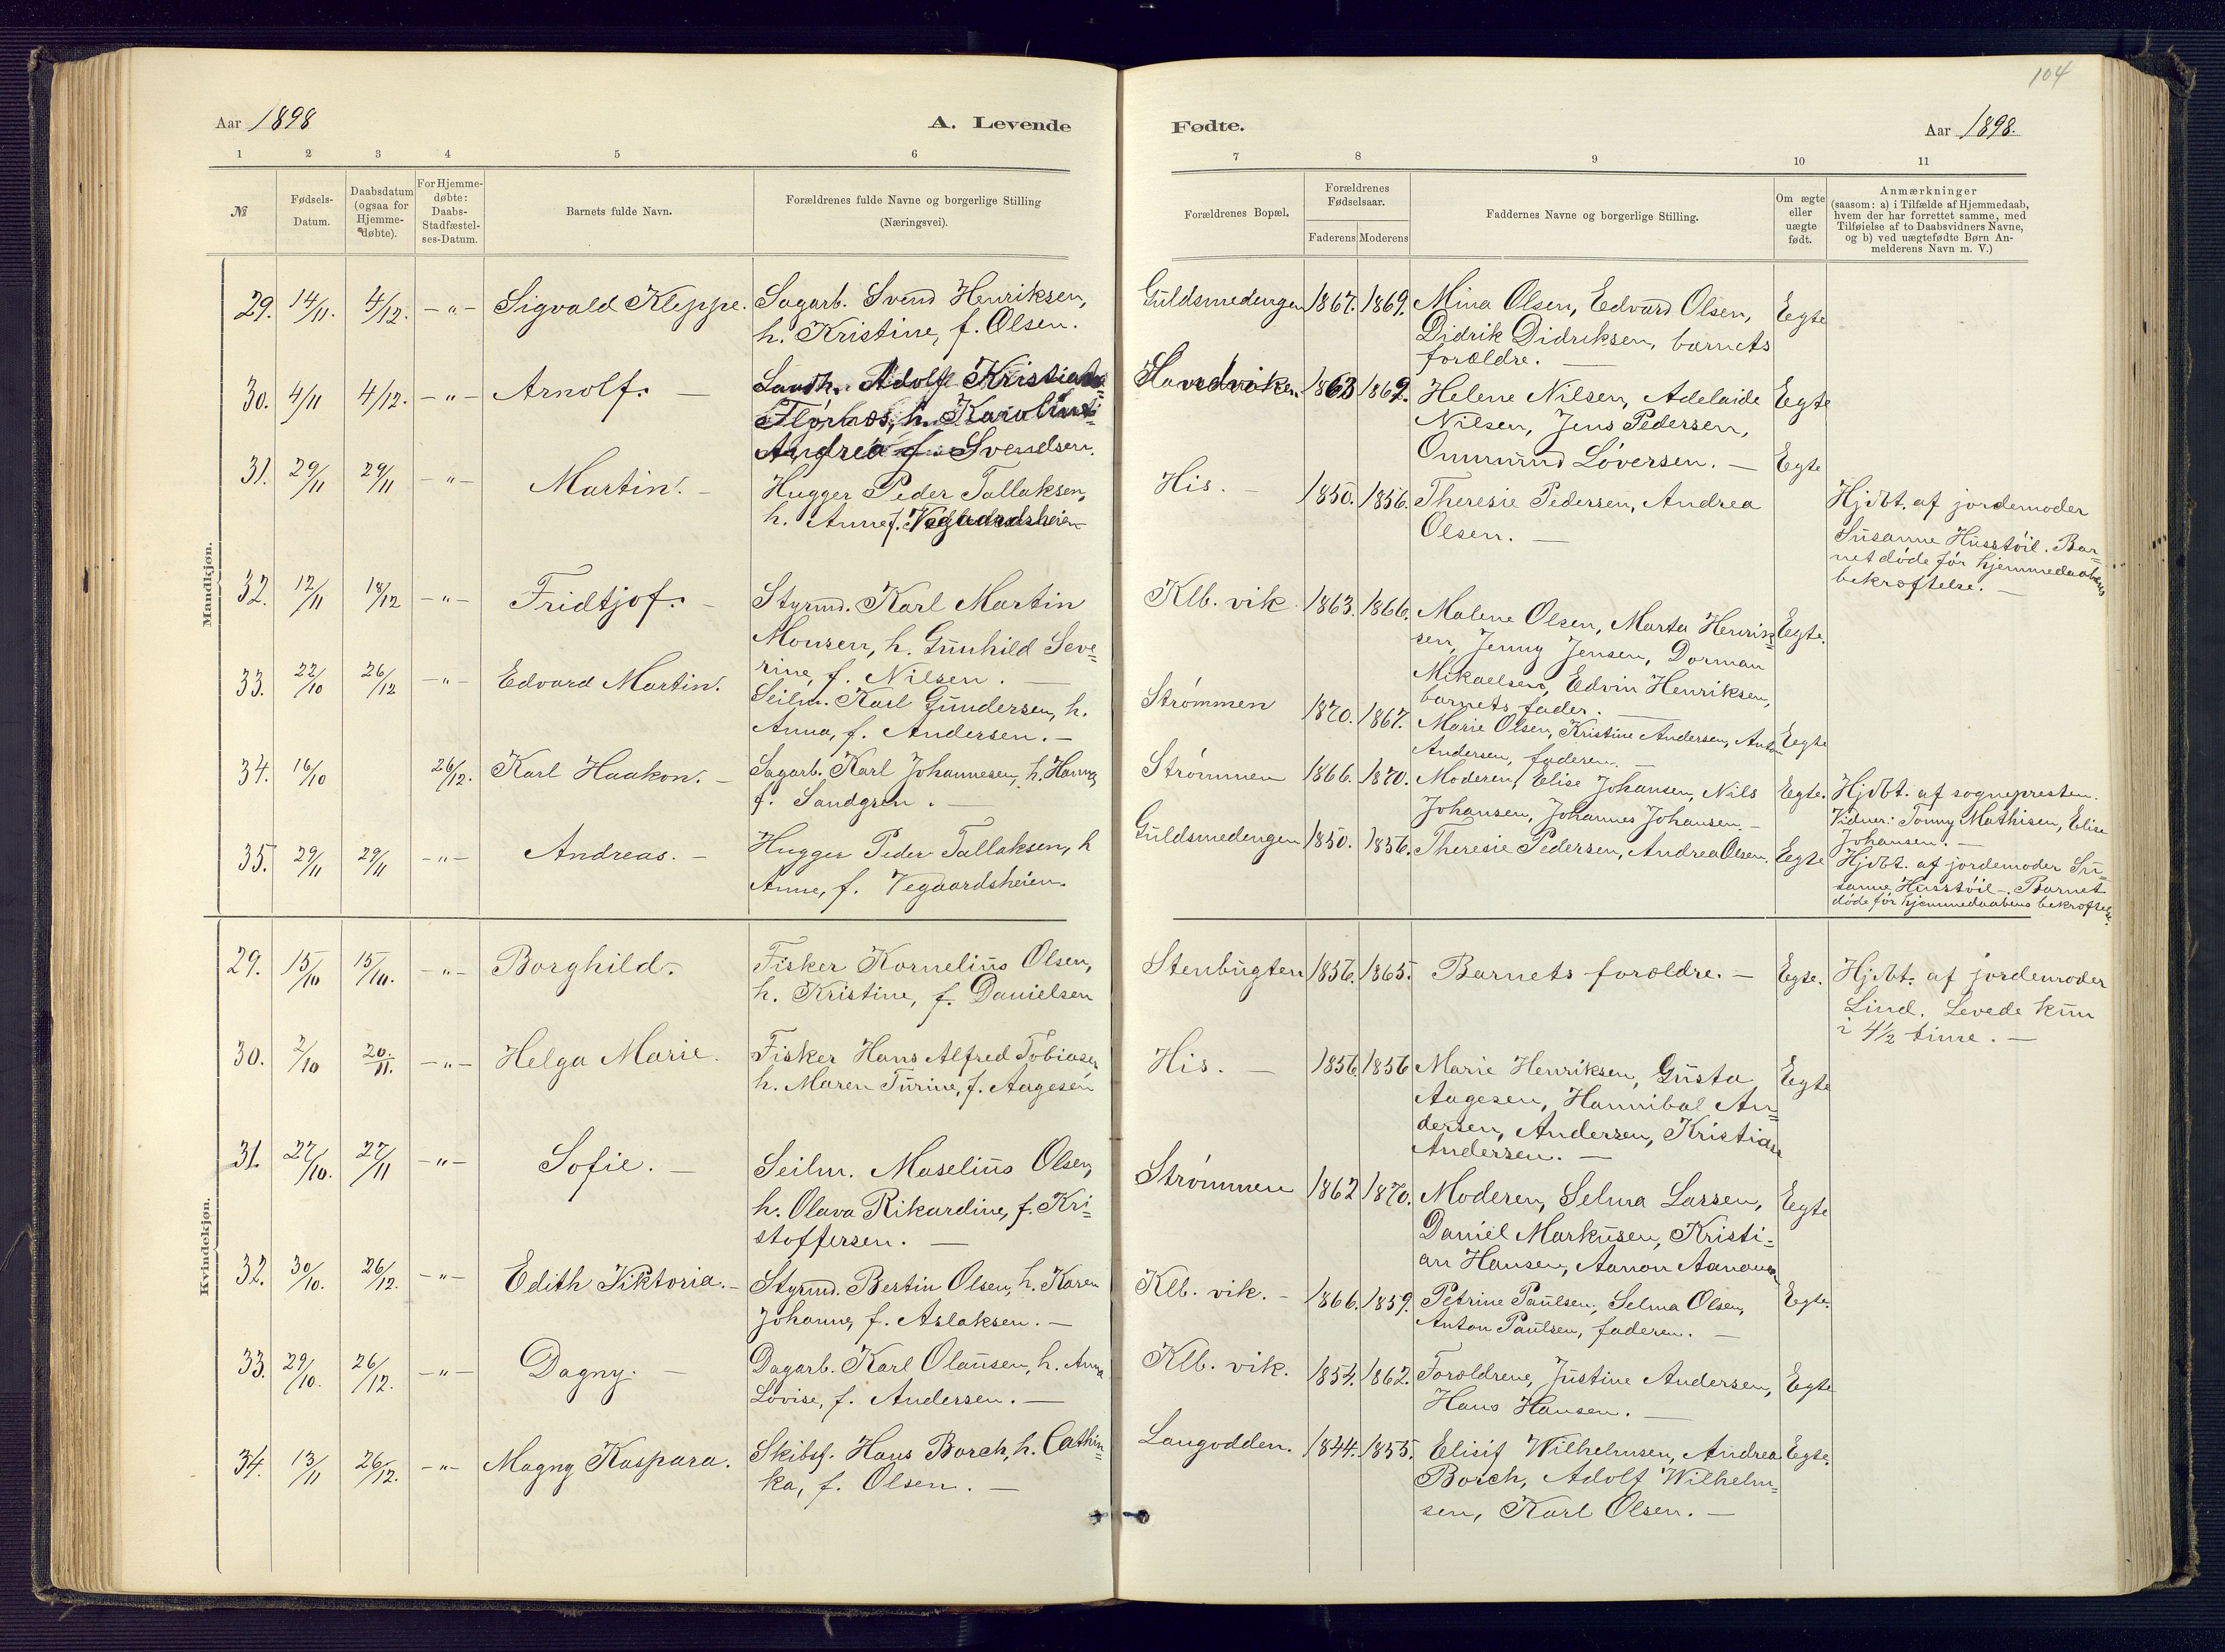 104
Aar 1898
A. Levende
Fødte.
Aar 1898.
1 2 3 4 5 6
7 8 9 10 11
№
Fødsels-
Datum.
Daabsdatum
(ogsaa for
Hjemme-
døbte).
For Hjemme-
døbte:
Daabs-
Stadfæstel-
ses-Datum.
Barnets fulde Navn.
Forældrenes fulde Navne og borgerlige Stilling
(Næringsvei).
Forældrenes Bopæl.
Forældrenes
Fødselsaar.
Faderens Moderens
Faddernes Navne og borgerlige Stilling.
Om ægte
eller
uægte
født.
Anmærkninger
(saasom: a) i Tilfælde af Hjemmedaab,
hvem der har forrettet samme, med
Tilføielse af to Daabsvidners Navne,
og b) ved uægtefødte Børn An-
melderens Navn m. V.)
Mandkjøn.
29. 14/11. 4/12. -"- Sigvald Kleppe. Sagarb. Svend Henriksen,
h. Kristine, f. Olsen.
Guldsmedengen 1867. 1869. Mina Olsen, Edvard Olsen, Egte
Didrik Didriksen, barnets
forældre. —
30. 4/11 4/12. -"- Arnolf. — Adolf
h. Karoline
Andrea f. Svendsen.
1863 1869. Helene Nilsen, Adelaide Egte
Nilsen, Jens Pedersen,
Ommund Løversen. —
31. 29/11 29/11 -"- Martin. — Hugger Peder Tallaksen,
h. Anne f. Vegaardsheien
His. — 1850. 1856. Theresie Pedersen, Andrea Egte
Olsen. —
Hjdbt. af jordemoder
Susanne Husstøil. Bar=
net døde før hjemmedaabens
bekræftelse. —
32. 12/11 18/12 -"- Fridtjof. — Styrmd. Karl Martin
Monsen, h. Gunhild Seve=
rine, f. Nilsen. —
Klb. vik. 1863. 1866. Malene Olsen, Marta Henrik= Egte.
sen, Jenny Jensen, Dorman
Mikaelsen, Edvin Henriksen,
barnets fader. —
33. 22/10 26/12 -"- Edvard Martin. Seilm. Karl Gundersen, h.
Anna, f. Andersen. —
Strømmen 1870. 1867. Marie Olsen, Kristine Andersen, Anton Egte
Andersen, faderen. —
34. 16/10 26/12. Karl Haakon. — Sagarb. Karl Johannesen, h. Hanna,
f. Sandgren. —
Strømmen 1866. 1870. Moderen, Elise Johansen, Nils Egte.
Johansen, Johannes Johansen. —
Hjdbt. af sognepresten.
Vidner: Tonny Mathisen, Elise
Johansen. —
35. 29/11 29/11 -"- Andreas. — Hugger Peder Tallaksen, h
Anne, f. Vegaardsheien.
Guldsmedengen 1850. 1856. Theresie Pedersen, Andrea Olsen. Egte
Hjdbt. af jordemoder Su=
sanne Husstøil. Barnet
døde før hjemmedaabens bekræftelse.
Kvindekjøn.
29. 15/10 15/10. -"- Borghild. Fisker Kornelius Olsen,
h. Kristine, f. Danielsen
Stenbugten 1856. 1865. Barnets forældre. — Egte.
Hjdbt. af jordemoder
Lind. Levede kun
i 4½ time. —
30. 2/10 20./11. -"- Helga Marie. Fisker Hans Alfred Tobiasen
h. Maren Turine, f. Aagesen
His. — 1856. 1856 Marie Henriksen, Gusta Egte
Aagesen, Hannibal An=
dersen, Andersen, Kristian
Andersen. —
31. 27/10. 27/11 -"- Sofie. — Seilm. Maselius Olsen,
h. Olava Rikardine, f. Kri=
stoffersen. —
Strømmen 1862 1870. Moderen, Selma Larsen, Egte
Daniel Markusen, Kristi=
an Hansen, Aanon Aanonsen
32. 30/10. 26/12. -"- Edith Viktoria. — Styrmd. Bertin Olsen, h. Karen
Johanne, f. Aslaksen. —
Klb. vik. — 1866. 1859. Petrine Paulsen, Selma Olsen, Egte.
Anton Paulsen, faderen. —
33. 29/10. 26/12. -"- Dagny. — Dagarb. Karl Olausen, h. Anna
Lovise, f. Andersen. —
Klb. vik. 1854. 1862. Forældrene, Justine Andersen, Egte
Hans Hansen. —
34. 13/11 26/12. -"- Magny Kaspara. Skibsf. Hans Borch, h. Cathin=
ka, f. Olsen. —
Langodden. 1844. 1855. Elisif Wilhelmsen, Andrea Egte.
Borch, Adolf Wilhelm=
sen, Karl Olsen. —